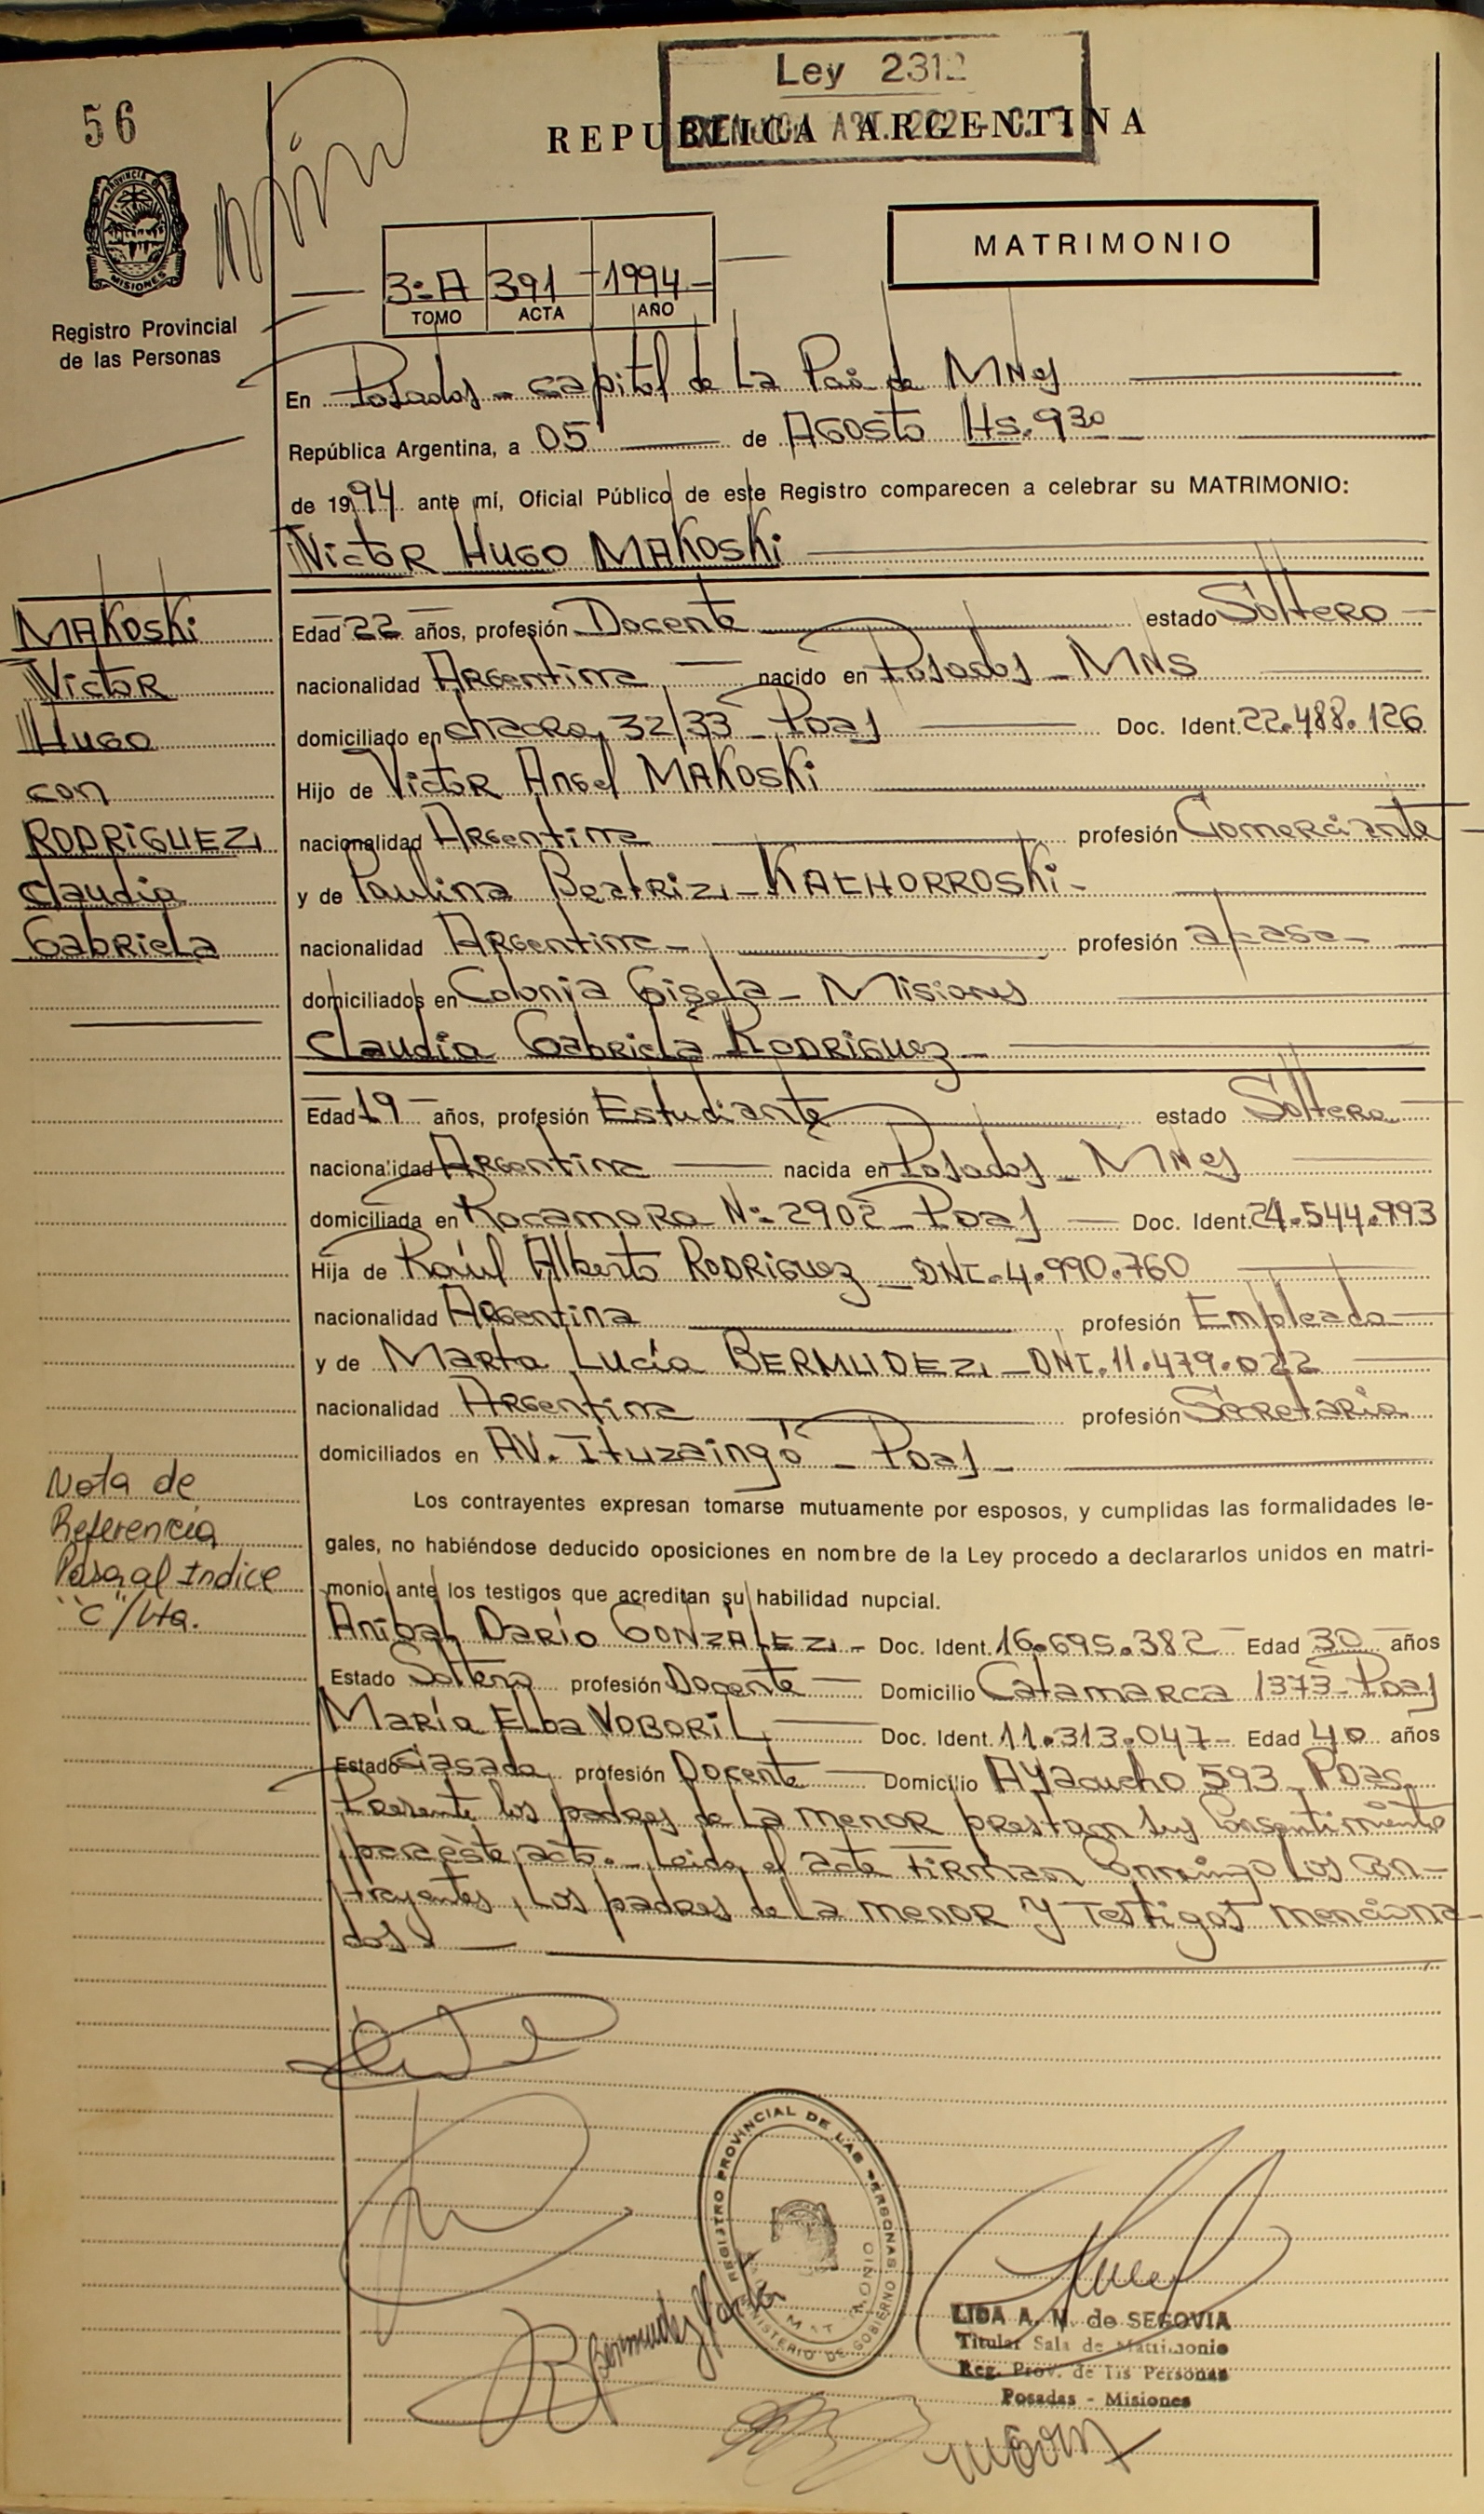 Ley 2312
56
REPUBLICA ARGENTINA
PROVINCIA DE
MISIONES
Registro Provincial
de las Personas
MATRIMONIO
3=A 391 1994
TOMO ACTA AÑO
En Posadas - capital de La Pcia de MNes
República Argentina, a 05 de AGOSTO Hs. 9 30
de 1994 ante mí, Oficial Público de este Registro comparecen a celebrar su MATRIMONIO:
Victor Hugo MAKOSKI
MAKOSKI
Victor
Hugo
con
RODRIGUEZ
Claudia
Gabriela
Edad 22 años, profesión Docente estado Soltero
nacionalidad Argentina nacido en Posadas - MNS
domiciliado en chacra 32/33 Pdas Doc. Ident. 22.488.126
Hijo de Victor Angel MAKOSKI
nacionalidad Argentina profesión Comerciante
y de Paulina Beatriz - KACHORROSKI -
nacionalidad Argentina - profesión a/casa -
domiciliados en Colonia Gisela - Misiones
Claudia Gabriela RODRIGUEZ
Edad 19 años, profesión Estudiante estado Soltera
nacionalidad Argentina nacida en Posadas - MNes
domiciliada en Rocamora N= 2902 - Pdas Doc. Ident. 24.544.993
Hija de Raúl Alberto RODRIGUEZ - DNI. 4.990.760
nacionalidad Argentina profesión Empleado
y de Marta Lucía BERMUDEZ - DNI. 11.479.022
nacionalidad Argentina profesión Secretaria
domiciliados en AV. Ituzaingó - Pdas -
Nota de
Referencia
Pasa al Indice
"C"/Vta.
Los contrayentes expresan tomarse mutuamente por esposos, y cumplidas las formalidades le-
gales, no habiéndose deducido oposiciones en nombre de la Ley procedo a declararlos unidos en matri-
monio ante los testigos que acreditan su habilidad nupcial.
Aníbal Darío GONZÁLEZ - Doc. Ident. 16.695.382 Edad 30 años
Estado Soltero profesión Docente Domicilio Catamarca 1373 - Pdas
María Elba VOBORIL Doc. Ident. 11.313.047 Edad 40 años
Estado Casada profesión Docente Domicilio AYacucho 593 - Pdas
Presente los padres de La menor prestan sus Consentimiento
para éste acto. - Leida el acta Firman Conmigo Los con-
trayentes, Los padres de La menor y Testigos menciona-
dos
REGISTRO PROVINCIAL DE LAS PERSONAS
MINISTERIO DE GOBIERNO
Bermudez Marta
LIDA A. M. de SEGOVIA
Titular Sala de Matrimonio
Reg. Prov. de las Personas
Posadas - Misiones